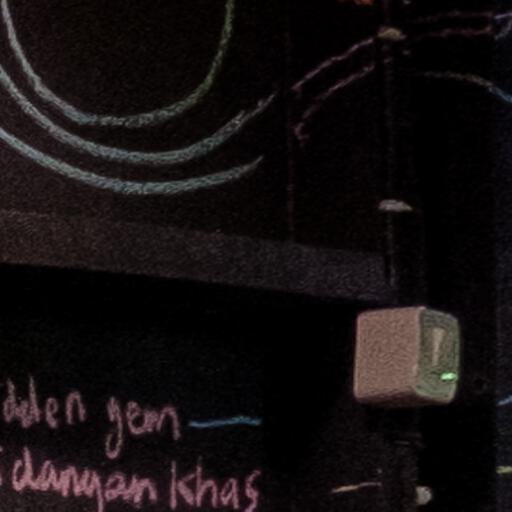 dden gem
danyan khas